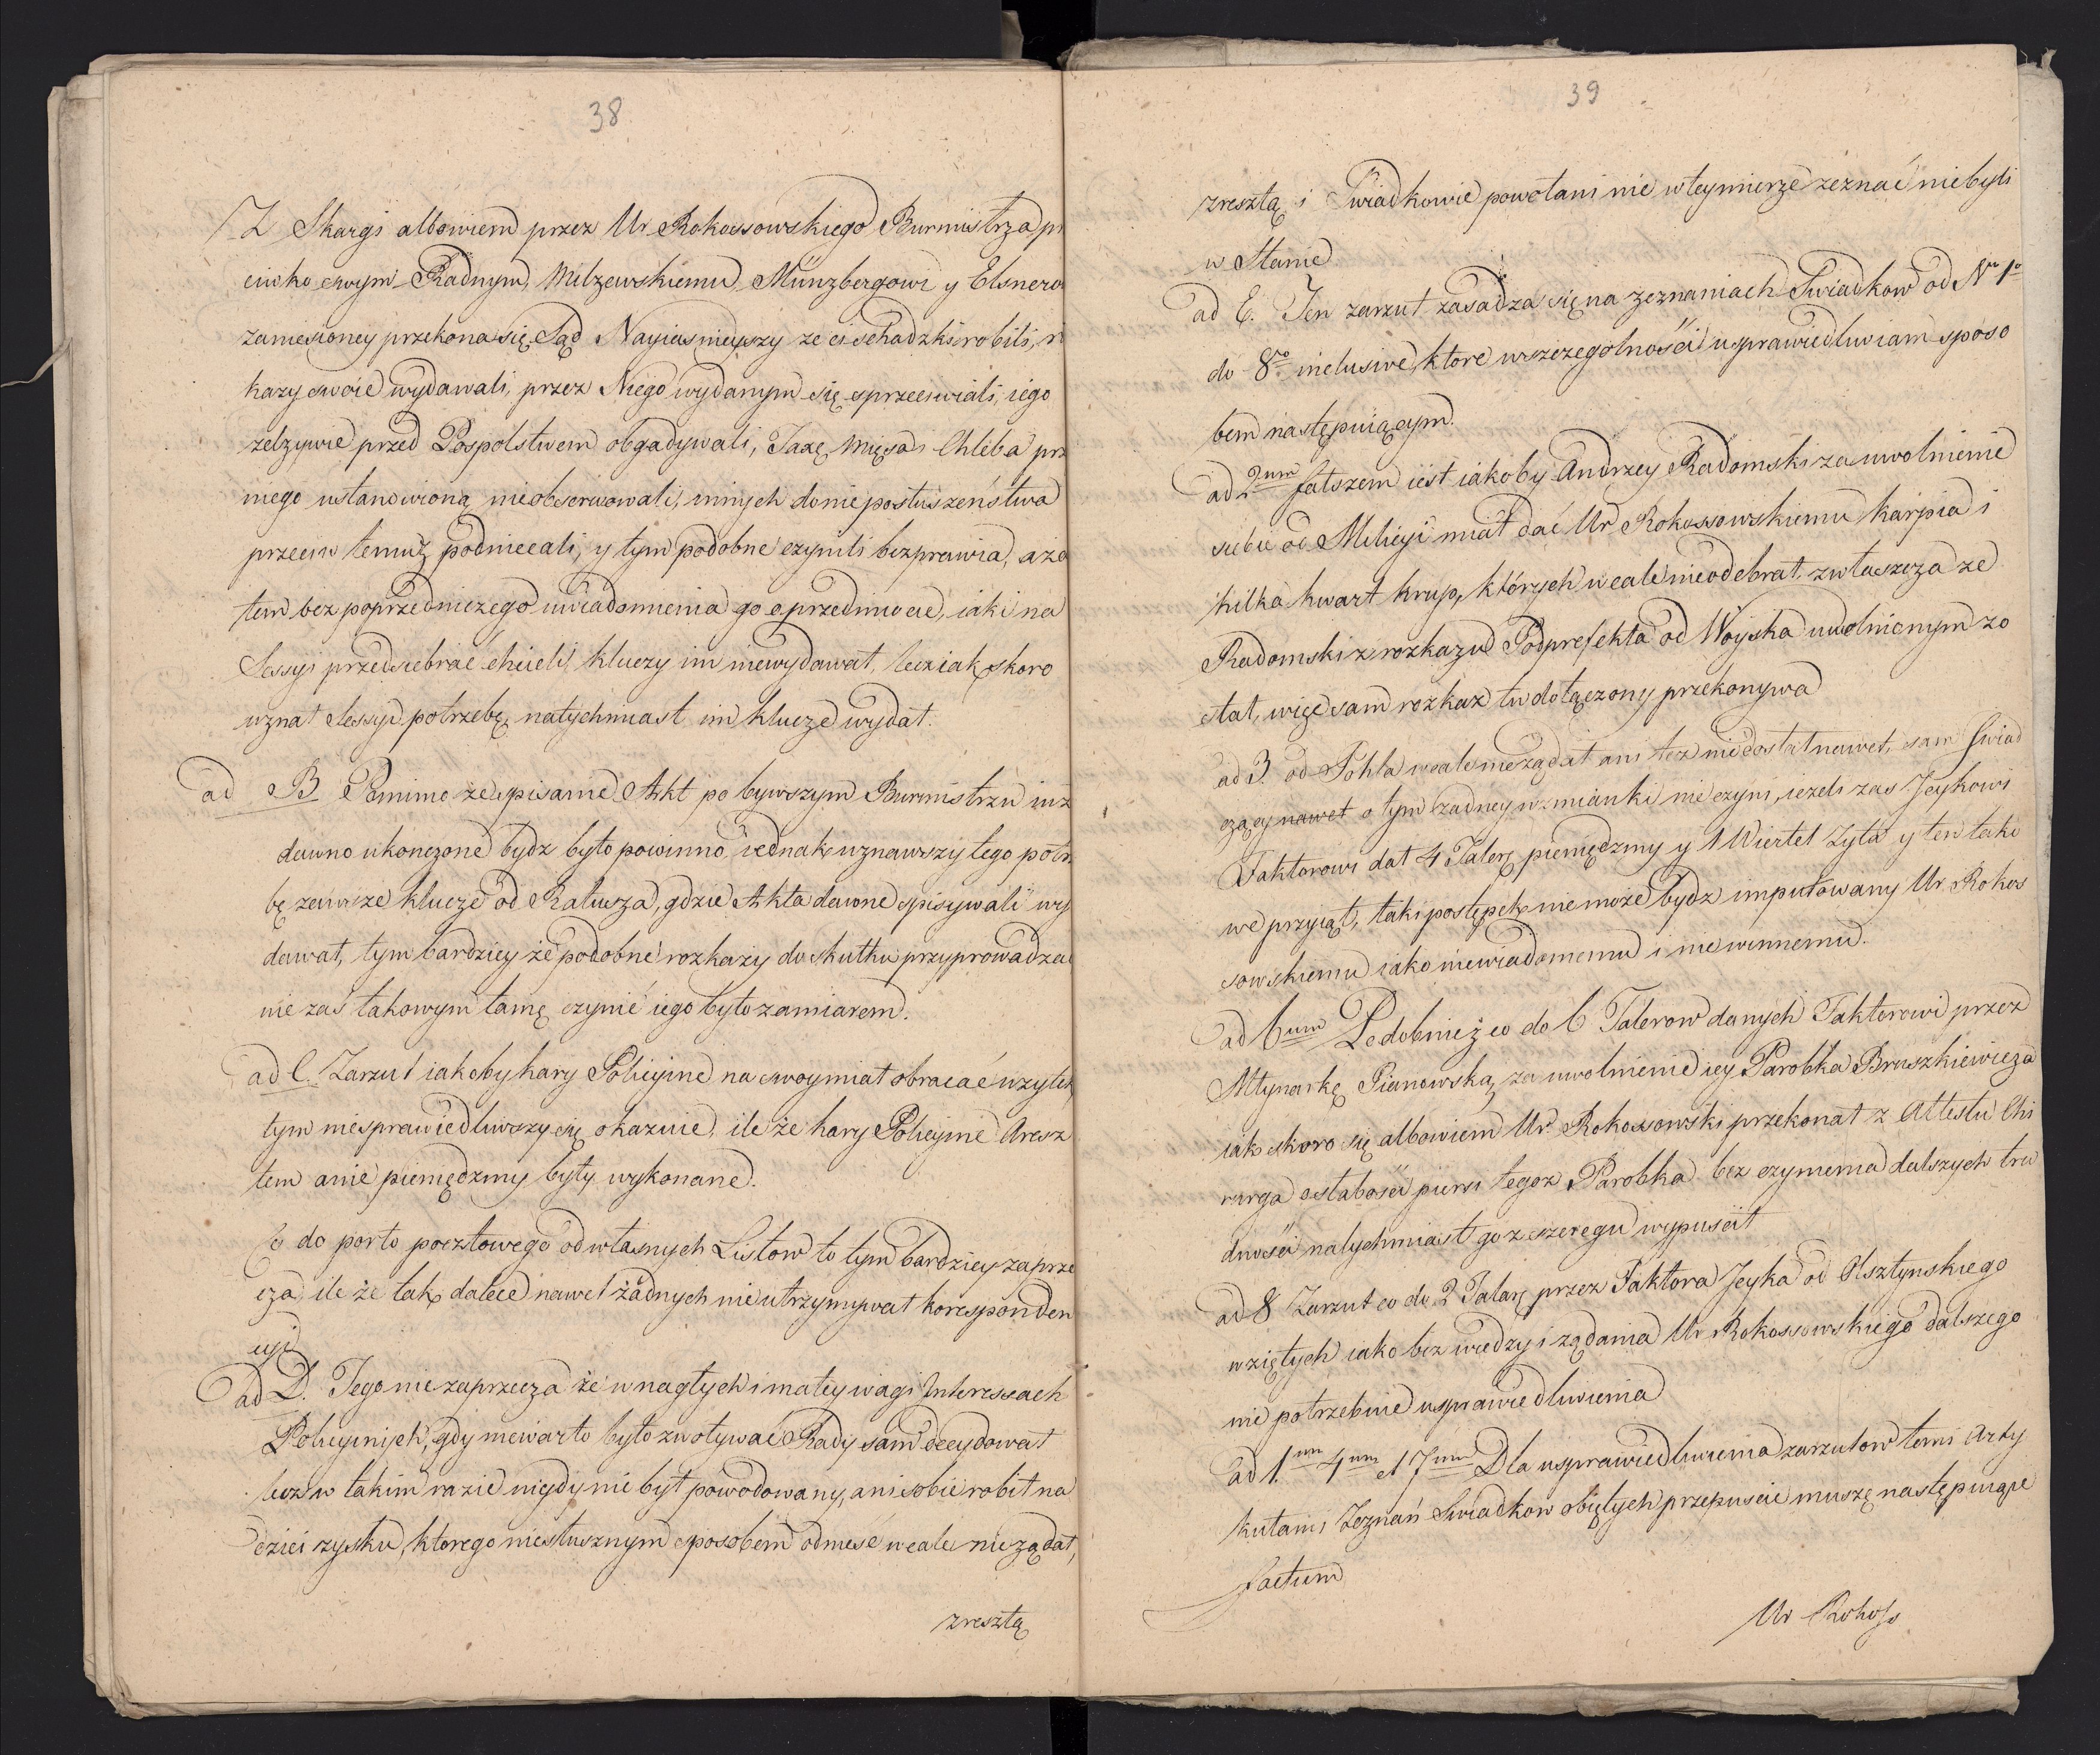 38
Z Skargi albowiem przez Ur Rokossowskiego Burmistrza prz
ciwko swym Radnym, Milzewskiemu Münzbergowi y Elsnero
zaniesioney przekona się Sąd Nayiasnieyszy ze ci schadzki robili, r
kazy swoie wydawali, przez Niego wydanym się sprzeciwiali, iego
zelzywie przed Pospolstwem obgadywali, Taxę Mięsa i Chleba prz
niego ustanowioną nieobserwowali, innych do nieposłuszeństwa
przeciw temuż podniecali, y tym podobne czynili bezprawia, a że
tem bez poprzedniczego uwiadomienia go o przedmiocie, iaki na
Sessyi przedsiebrać chcieli, kluczy im niewydawał, lecz iak skoro
uznał Sessyi potrzebę, natychmiast im klucze wydał.
ad B Pomimo że spisanie Akt po bywszym Burmistrzu iuż
dawno ukonczone bydz było powinno, iednak uznawszy tego potrz
bę zawsze klucze od Ratusza, gdzie Akta dawne spisywali wy
dawał, tym bardziey że podobne rozkazy do skutku przyprowadzać
nie zaś takowym tamę czynić iego było zamiarem.
ad C. Zarzut iakoby kary Policyine na swoy miał obracać uzytek
tym niesprawiedliwszy się okazuie, ile że kary Policyine Aresz
tem a nie pieniędzmy były wykonane.
Co do porto pocztowego od własnych Listow to tym bardziey zaprze
cza, ile że tak dalece nawet żadnych nie utrzymywał koresponden
cyi
ad D. Tego nie zaprzecza że w nagłych i małey wagi Interessach
Policyinych, gdy niewarto było zwoływać Rady sam decydował
lecz w takim razie nigdy nie był powodowany, ani sobie robił na
dziei zysku, ktorego niesłusznym sposobem odnieść wcale nie żądał,
zresztą
39
zresztą i Swiadkowie powołani nie w teymierze zeznać niebyli
w Stanie
ad E. Ten zarzut zasadza się na zeznaniach Swiadkow od Nr 1o
do 8vo inclusive, ktore wszczegolności usprawiedliwiam sposo
bem następuiącym.
ad 2um fałszem iest iakoby Andrzey Radomski za uwolnienie
siebie od Milicyi miał dać Ur Rokossowskiemu karpia i
kilka kwart krup, których wcale nieodebrał, zwłaszcza ze
Radomski z rozkazu Podprefekta od Woyska uwolnionym zo
stał, więc sam rozkaz tu dołączony przekonywa
ad 3. od Pohla wcale nieżądał ani tez niedostał nawet, sam Swiad
czący nawet o tym żadney wzmianki nie czyni, iezeli zas Jeykowi
Faktorowi dał 4 Talery pieniędzmy y 1 Wiertel Zyta y ten tako
we przyiął, taki postępek nie może bydz imputowany Ur. Rokos
sowskiemu iako niewiadomemu i niewinnemu.
ad 6um Podobnież co do 6 Talerow danych Faktorowi przez
Młynarkę Pianowską, za uwolnienie iey Parobka Bruszkiewicza
iak skoro się albowiem Ur. Rokossowski przekonał z Attestu Chi
rurga o słabości piersi tegoz Parobka bez czynienia dalszych tru
dności natychmiast go z szeregu wypuścił
ad 8 Zarzut co do 2 Talary przez Faktora Jeyka od Olsztynskiego
wziętych iako bez wiedzy i żądania Ur Rokossowskiego dalszego
nie potrzebuie usprawiedliwienia
ad 1um 4um et 7um Dla usprawiedliwienia zarzutow temi Arty
kułami Zeznań Swiadkow obiętych przepuscie muszę następuiące
factum
Ur Rokoso